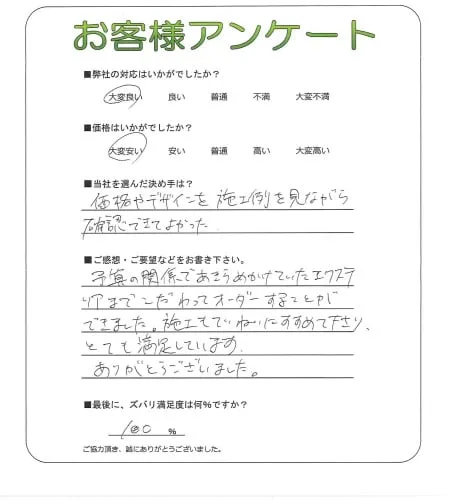 お客様アンケート
■弊社の対応はいかがでしたか?
大変良い 良い 普通 不満 大変不満
■価格はいかがでしたか?
大変安い 安い 普通 高い 大変高い
■当社を選んだ決め手は?
価格やデザインを施工例を見ながら
確認できてよかった
■ご感想・ご要望などをお書き下さい。
予算の関係であきらめかけていたエクステ
リアまでこだわってオーダーすることが
できました。施工もていねいにすすめて下さり、
とても満足しています。
ありがとうございました。
■最後に、ズバリ満足度は何%ですか?
100 %
ご協力頂き、誠にありがとうございました。